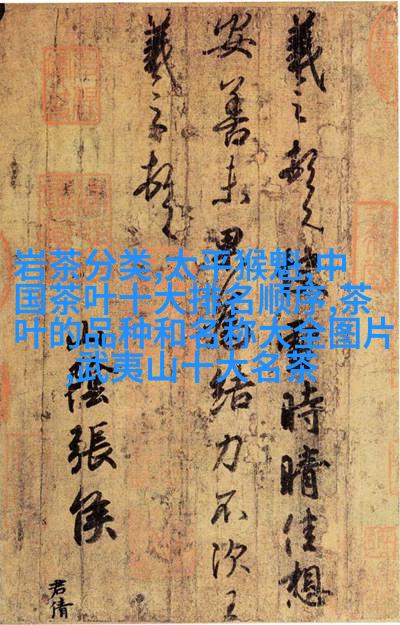 羲之頓首雪時晴佳想
安善未果為結力不次王
羲之頓首
山陰張侯
君倩
岩茶分类,太平猴魁,中
国茶叶十大排名顺序,茶
叶的品种和名称大全图片
,武夷山十大名茶